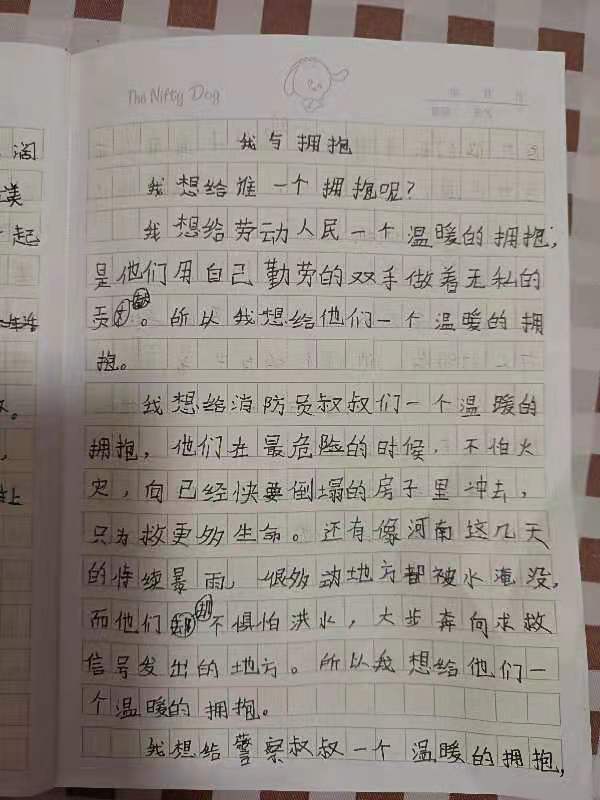 The Nifty Dog
我与拥抱
我想给谁一个拥抱呢？
我想给劳动人民一个温暖的拥抱，
是他们用自己勤劳的双手做着无私的
贡献。所以我想给他们一个温暖的拥
抱。
我想给消防员叔叔们一个温暖的
拥抱，他们在最危险的时候，不怕火
灾，向已经快要倒塌的房子里冲去，
只为救更多生命。还有像河南这几天
的持续暴雨，很多动地方都被水淹没，
而他们却不惧怕洪水，大步奔向求救
信号发出的地方。所以我想给他们一
个温暖的拥抱。
我想给警察叔叔一个温暖的拥抱，
阔
美
起
。
，
上